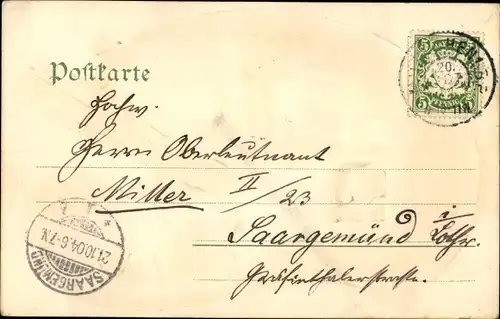 Postkarte
Hochw.
Herrn Oberleutnant
Miller II/23
Saargemünd i/Lothr.
SAARGEMÜND
21.10.04.6-7N.
5 5
20.